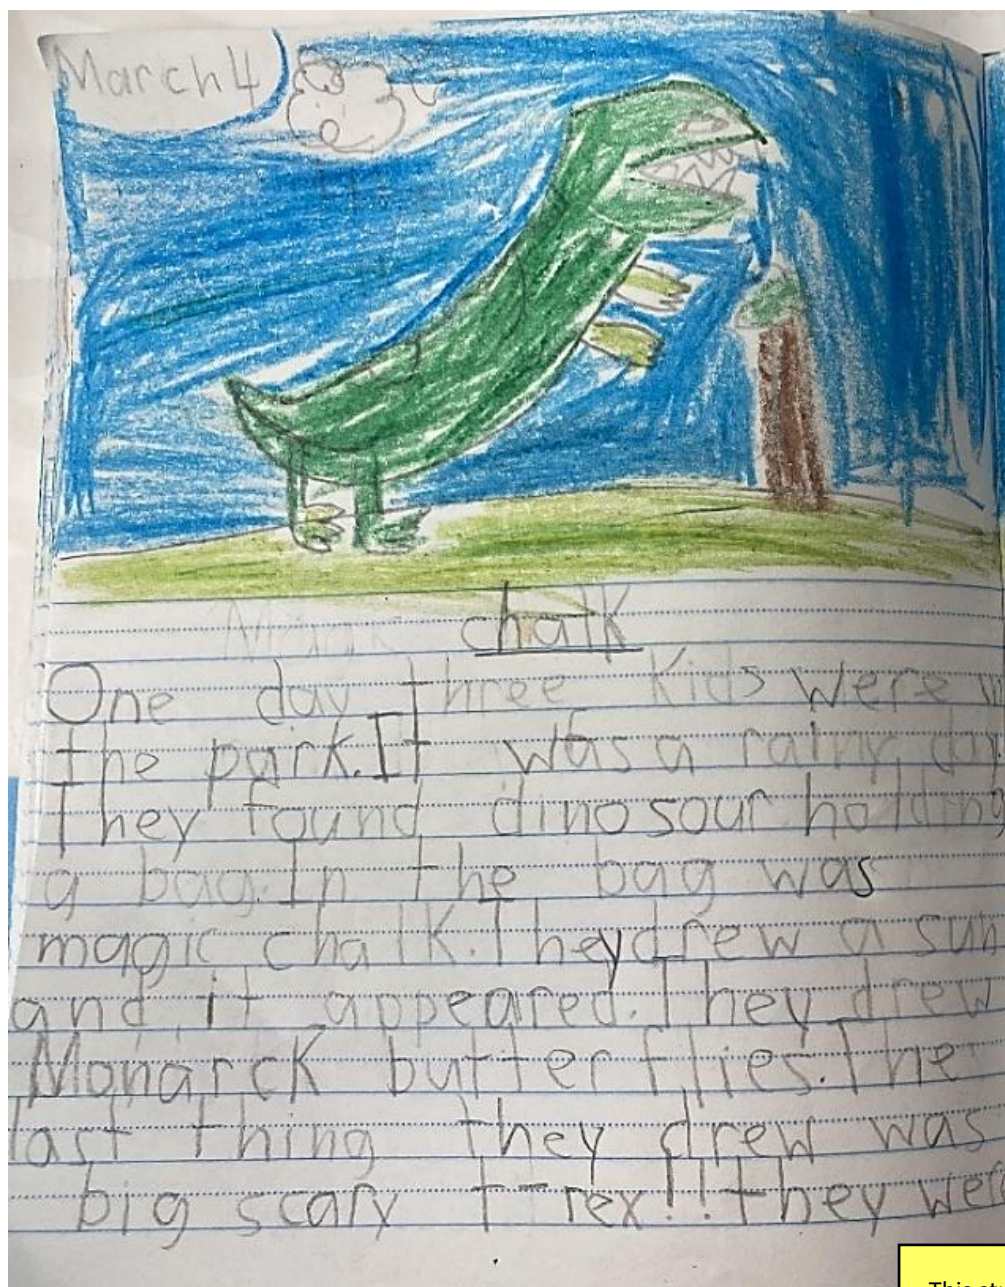 March 4
Magic chalk
One day three kids were in
the park. It was a rainy day
They found dinosour holding
a bag. In the bag was
magic chalk. They drew a sun
and it appeared. They drew
Monarck butterflies. The
last thing they drew was
big scary t-rex!! they wer
This st